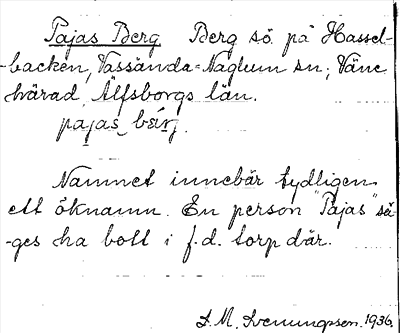 Pajas Berg Berg sö. på Hassel-
-backen, Vassända-Naglum sn; Väne
härad, Älfsborgs län.
pajas bärj.
Namnet innebär tydligen
ett öknamn. En person "Pajas" sä-
-ges ha bott i f.d. torp där.
I.M. Svenungsson. 1936.